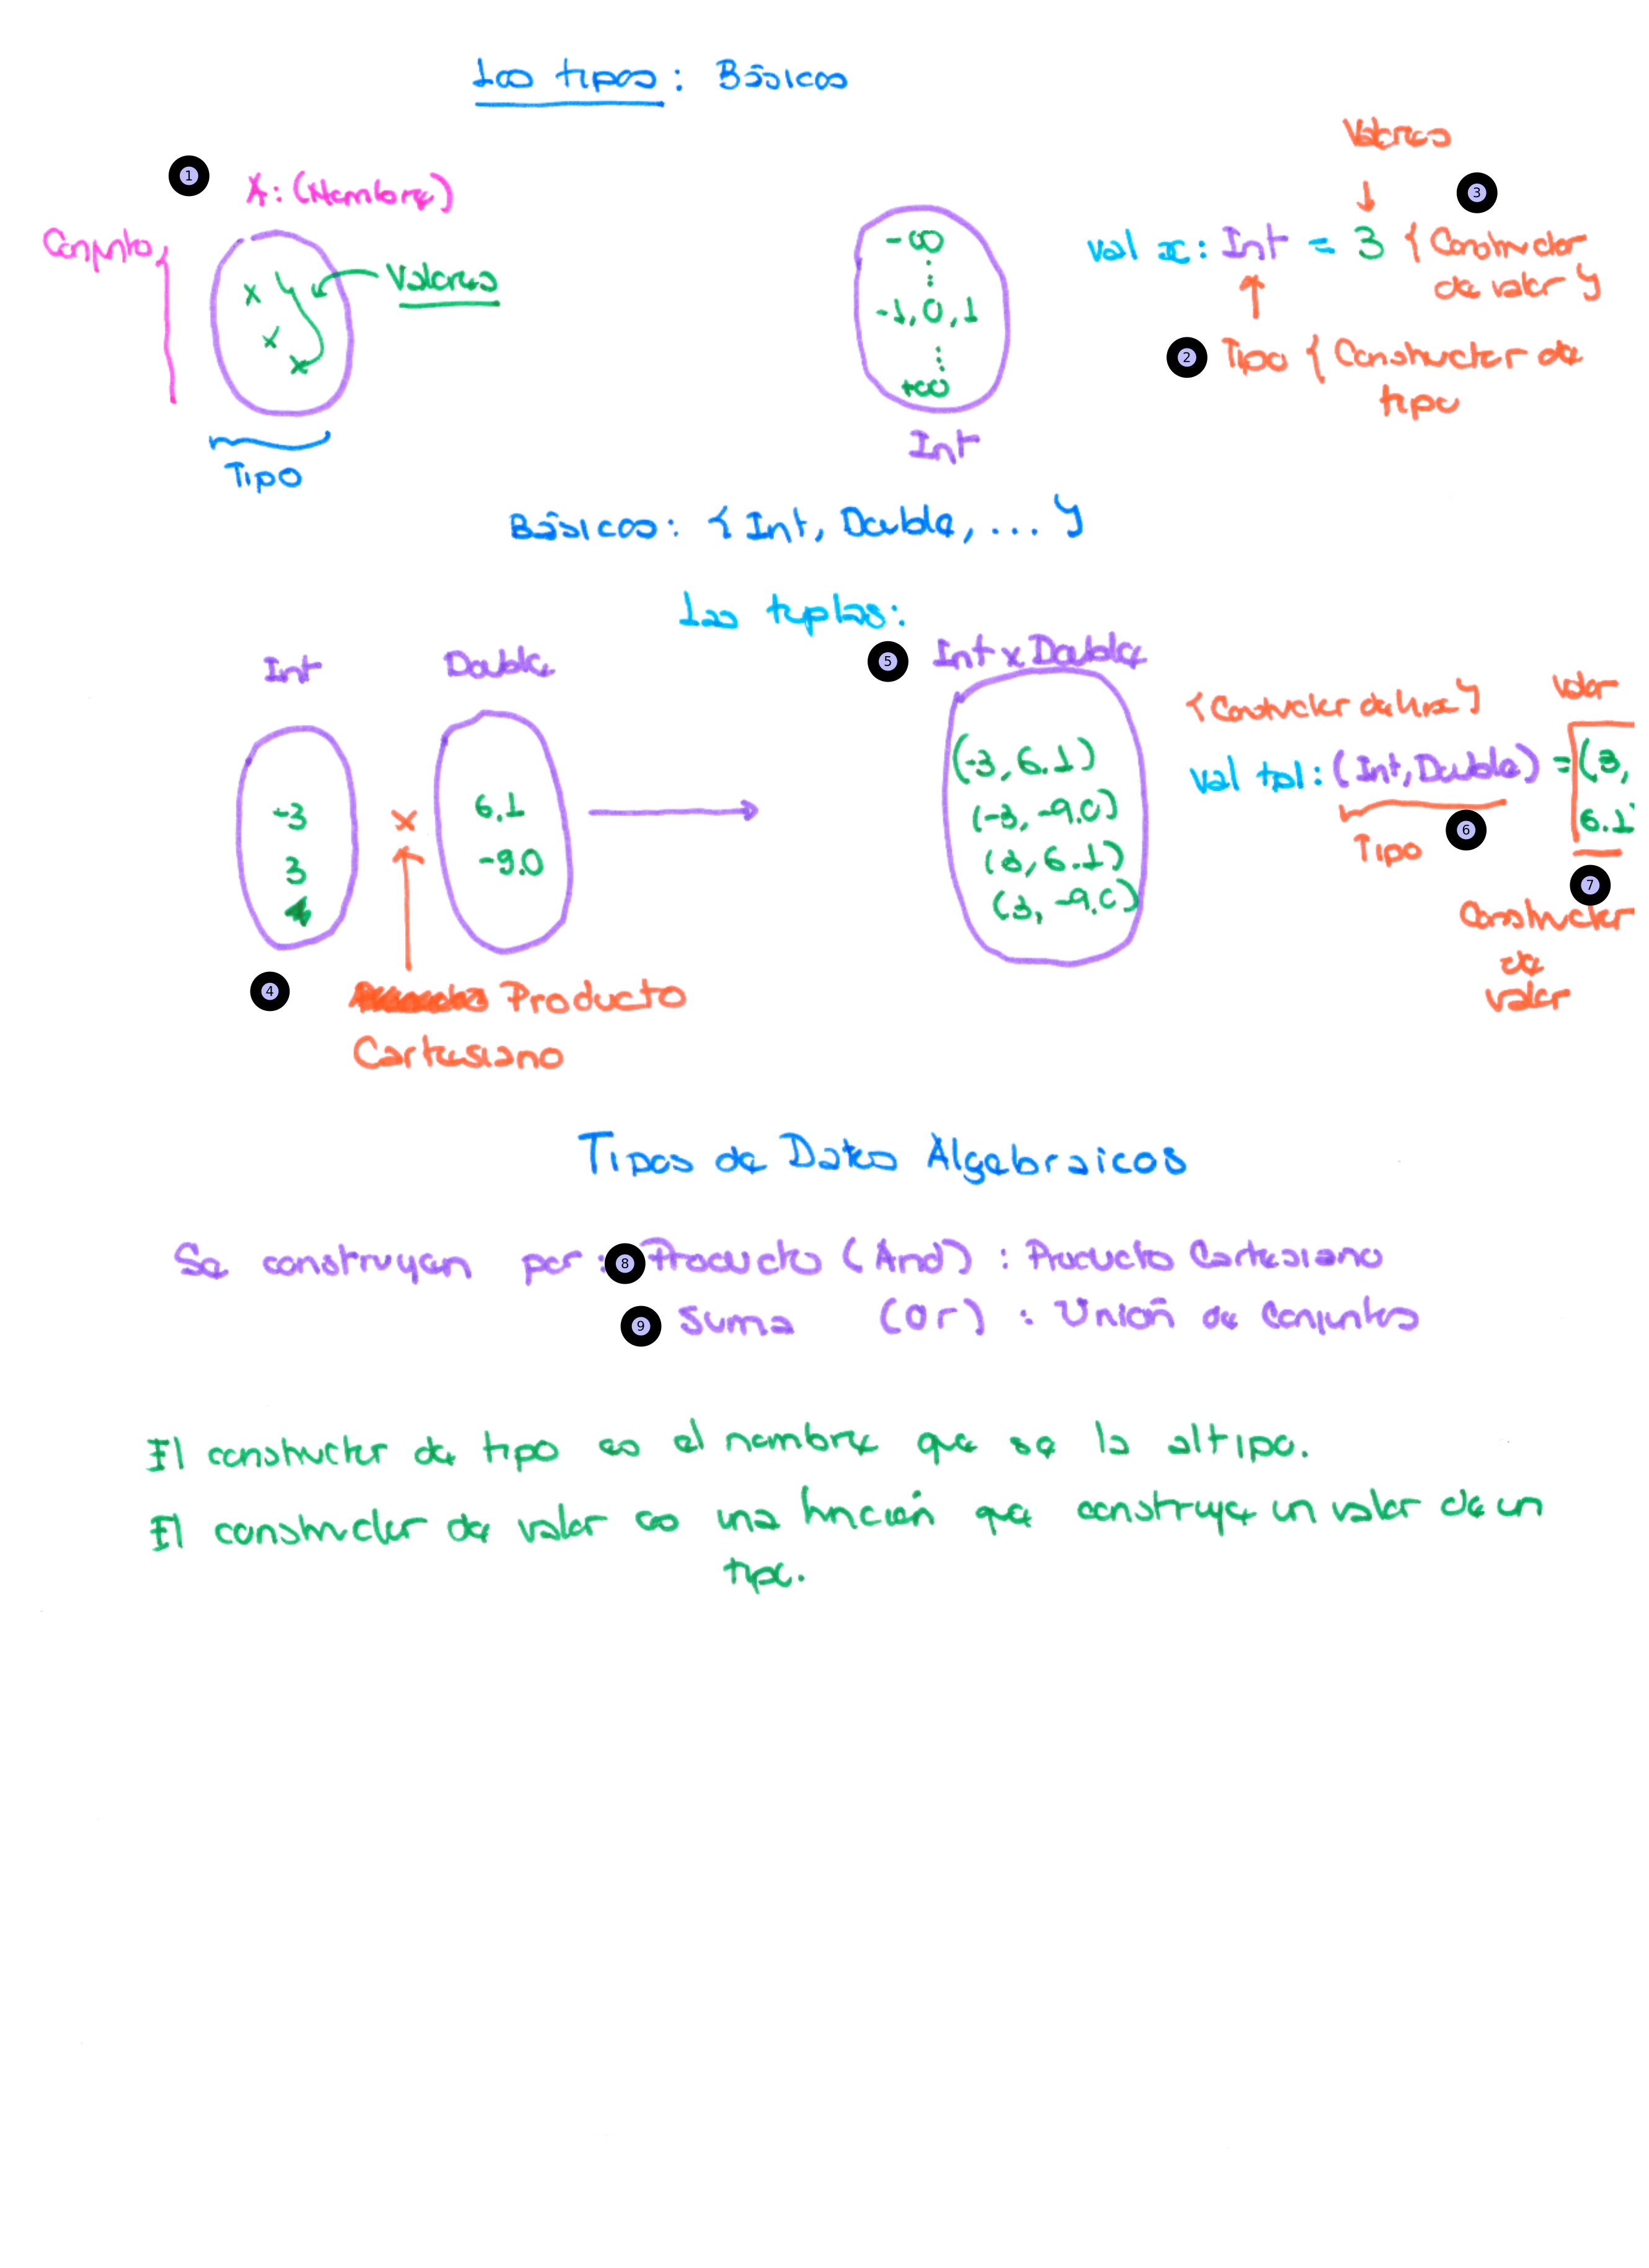 Los tipos: Básicos
1
A: (Nombre)
Conjunto {
Valores
Tipo
-∞
⋮
-1, 0, 1
⋮
+∞
Int
Valores
↓
3
val x: Int = 3 { Constructor
de valor }
↑
2 Tipo { Constructor de
tipo
Básicos: { Int, Double, ... }
Las tuplas:
Int
Double
-3
3
×
6.1
-9.0
4
Producto
Cartesiano
5 Int x Double
(-3, 6.1)
(-3, -9.0)
(3, 6.1)
(3, -9.0)
{ Constructor de }
Valor
val tpl: (Int, Double) = (3,
6.1
Tipo 6
7
Constructor
de
valor
Tipos de Datos Algebraicos
Se construyen por: 8 Producto (And) : Producto Cartesiano
9 Suma (Or) : Unión de Conjuntos
El constructor de tipo es el nombre que se la al tipo.
El constructor de valor es una función que construye un valor de un
tipo.